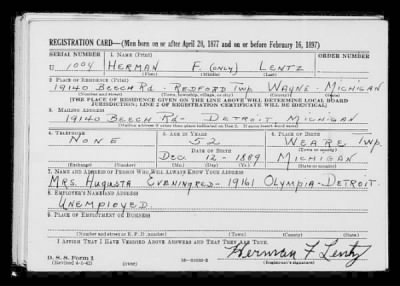 REGISTRATION CARD—(Men born on or after April 28, 1877 and on or before February 16, 1897)
SERIAL NUMBER 1. NAME (Print) ORDER NUMBER
U 1004 HERMAN F. (ONLY) LENTZ
(First) (Middle) (Last)
2. PLACE OF RESIDENCE (Print)
19140 BEECH Rd - REDFORD Twp WAYNE - MICHIGAN
(Number and street) (Town, township, village, or city) (County) (State)
[THE PLACE OF RESIDENCE GIVEN ON THE LINE ABOVE WILL DETERMINE LOCAL BOARD
JURISDICTION; LINE 2 OF REGISTRATION CERTIFICATE WILL BE IDENTICAL]
3. MAILING ADDRESS
19140 BEECH Rd - DETROIT MICHIGAN
[Mailing address if other than place indicated on line 2. If same insert word same]
4. TELEPHONE 5. AGE IN YEARS 6. PLACE OF BIRTH
NONE 52 WEARE Twp.
DATE OF BIRTH (Town or county)
DEC. 12 - 1889 MICHIGAN
(Exchange) (Number) (Mo.) (Day) (Yr.) (State or country)
7. NAME AND ADDRESS OF PERSON WHO WILL ALWAYS KNOW YOUR ADDRESS
MRS. AUGUSTA EVENINGRED - 19161 OLYMPIA - DETROIT.
8. EMPLOYER'S NAME AND ADDRESS
UNEMPLOYED.
9. PLACE OF EMPLOYMENT OR BUSINESS
(Number and street or R. F. D. number) (Town) (County) (State)
I AFFIRM THAT I HAVE VERIFIED ABOVE ANSWERS AND THAT THEY ARE TRUE.
D. S. S. Form 1
(Revised 4-1-42) Herman F Lentz
(Registrant's signature)